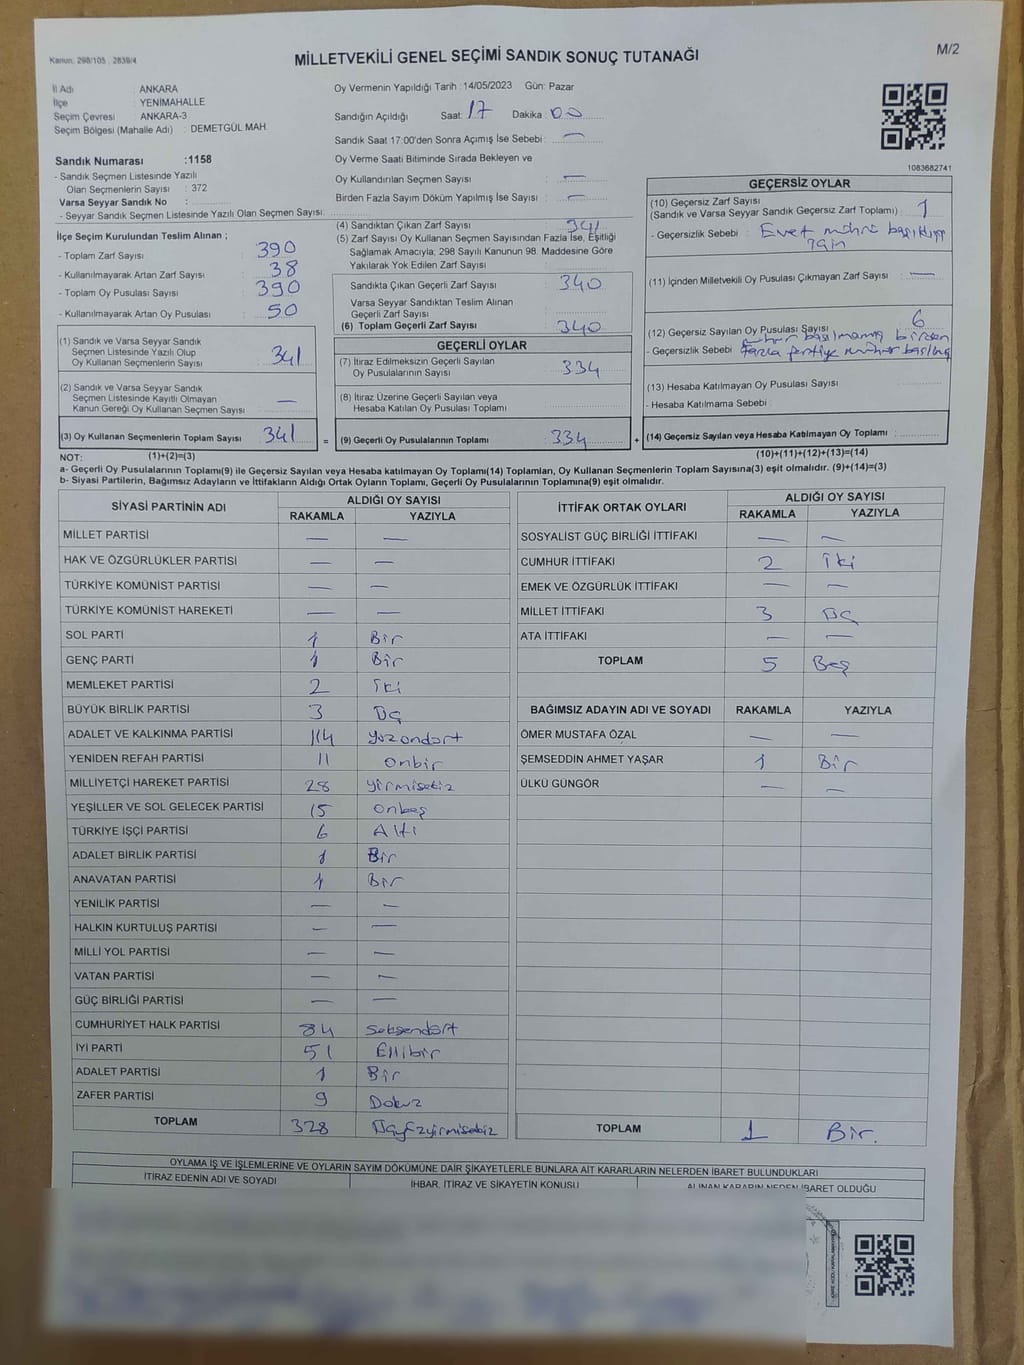 Kanun: 298/105 , 2839/4
MİLLETVEKİLİ GENEL SEÇİMİ SANDIK SONUÇ TUTANAĞI
M/2
İl Adı : ANKARA
İlçe : YENİMAHALLE
Seçim Çevresi : ANKARA-3
Seçim Bölgesi (Mahalle Adı) : DEMETGÜL MAH
Sandık Numarası :1158
- Sandık Seçmen Listesinde Yazılı
Olan Seçmenlerin Sayısı : 372
Varsa Seyyar Sandık No :
- Seyyar Sandık Seçmen Listesinde Yazılı Olan Seçmen Sayısı:
Oy Vermenin Yapıldığı Tarih :14/05/2023 Gün: Pazar
Sandığın Açıldığı Saat: 17 Dakika 00
Sandık Saat 17:00'den Sonra Açımış İse Sebebi: —
Oy Verme Saati Bitiminde Sırada Bekleyen ve
Oy Kullandırılan Seçmen Sayısı : —
Birden Fazla Sayım Döküm Yapılmış İse Sayısı : —
1083682741
İlçe Seçim Kurulundan Teslim Alınan ;
- Toplam Zarf Sayısı : 390
- Kullanılmayarak Artan Zarf Sayısı : 38
- Toplam Oy Pusulası Sayısı : 390
- Kullanılmayarak Artan Oy Pusulası : 50
(1) Sandık ve Varsa Seyyar Sandık
Seçmen Listesinde Yazılı Olup
Oy Kullanan Seçmenlerin Sayısı : 341
(2) Sandık ve Varsa Seyyar Sandık
Seçmen Listesinde Kayıtlı Olmayan
Kanun Gereği Oy Kullanan Seçmen Sayısı : —
(3) Oy Kullanan Seçmenlerin Toplam Sayısı : 341
(4) Sandıktan Çıkan Zarf Sayısı : 341
(5) Zarf Sayısı Oy Kullanan Seçmen Sayısından Fazla İse, Eşitliği
Sağlamak Amacıyla, 298 Sayılı Kanunun 98. Maddesine Göre
Yakılarak Yok Edilen Zarf Sayısı :
Sandıkta Çıkan Geçerli Zarf Sayısı : 340
Varsa Seyyar Sandıktan Teslim Alınan
Geçerli Zarf Sayısı :
(6) Toplam Geçerli Zarf Sayısı : 340
GEÇERLİ OYLAR
(7) İtiraz Edilmeksizin Geçerli Sayılan
Oy Pusulalarının Sayısı : 334
(8) İtiraz Üzerine Geçerli Sayılan veya
Hesaba Katılan Oy Pusulası Toplamı :
= (9) Geçerli Oy Pusulalarının Toplamı : 334
GEÇERSİZ OYLAR
(10) Geçersiz Zarf Sayısı
(Sandık ve Varsa Seyyar Sandık Geçersiz Zarf Toplamı) : 1
- Geçersizlik Sebebi : Evet mührü
için
(11) İçinden Milletvekili Oy Pusulası Çıkmayan Zarf Sayısı : —
(12) Geçersiz Sayılan Oy Pusulası Sayısı : 6
mühür basılmamış birden
- Geçersizlik Sebebi fazla partiye mühür basılmış
(13) Hesaba Katılmayan Oy Pusulası Sayısı :
- Hesaba Katılmama Sebebi :
+ (14) Geçersiz Sayılan veya Hesaba Katılmayan Oy Toplamı :
NOT: (1)+(2)=(3)
(10)+(11)+(12)+(13)=(14)
a- Geçerli Oy Pusulalarının Toplamı(9) ile Geçersiz Sayılan veya Hesaba katılmayan Oy Toplamı(14) Toplamları, Oy Kullanan Seçmenlerin Toplam Sayısına(3) eşit olmalıdır. (9)+(14)=(3)
b- Siyasi Partilerin, Bağımsız Adayların ve İttifakların Aldığı Ortak Oyların Toplamı, Geçerli Oy Pusulalarının Toplamına(9) eşit olmalıdır.
SİYASİ PARTİNİN ADI ALDIĞI OY SAYISI
RAKAMLA YAZIYLA
MİLLET PARTİSİ — —
HAK VE ÖZGÜRLÜKLER PARTİSİ — —
TÜRKİYE KOMÜNİST PARTİSİ — —
TÜRKİYE KOMÜNİST HAREKETİ — —
SOL PARTİ 1 Bir
GENÇ PARTİ 1 Bir
MEMLEKET PARTİSİ 2 iki
BÜYÜK BİRLİK PARTİSİ 3 Üç
ADALET VE KALKINMA PARTİSİ 114 yüzondört
YENİDEN REFAH PARTİSİ 11 onbir
MİLLİYETÇİ HAREKET PARTİSİ 28 yirmisekiz
YEŞİLLER VE SOL GELECEK PARTİSİ 15 onbeş
TÜRKİYE İŞÇİ PARTİSİ 6 Altı
ADALET BİRLİK PARTİSİ 1 Bir
ANAVATAN PARTİSİ 1 Bir
YENİLİK PARTİSİ — —
HALKIN KURTULUŞ PARTİSİ — —
MİLLİ YOL PARTİSİ — —
VATAN PARTİSİ — —
GÜÇ BİRLİĞİ PARTİSİ — —
CUMHURİYET HALK PARTİSİ 84 seksendört
İYİ PARTİ 51 Ellibir
ADALET PARTİSİ 1 Bir
ZAFER PARTİSİ 9 Dokuz
TOPLAM 328 Üçyüzyirmisekiz
İTTİFAK ORTAK OYLARI ALDIĞI OY SAYISI
RAKAMLA YAZIYLA
SOSYALİST GÜÇ BİRLİĞİ İTTİFAKI — —
CUMHUR İTTİFAKI 2 iki
EMEK VE ÖZGÜRLÜK İTTİFAKI — —
MİLLET İTTİFAKI 3 Üç
ATA İTTİFAKI — —
TOPLAM 5 Beş
BAĞIMSIZ ADAYIN ADI VE SOYADI RAKAMLA YAZIYLA
ÖMER MUSTAFA ÖZAL — —
ŞEMSEDDİN AHMET YAŞAR 1 Bir
ÜLKÜ GÜNGÖR — —
TOPLAM 1 Bir.
OYLAMA İŞ VE İŞLEMLERİNE VE OYLARIN SAYIM DÖKÜMÜNE DAİR ŞİKAYETLERLE BUNLARA AİT KARARLARIN NELERDEN İBARET BULUNDUKLARI
İTİRAZ EDENİN ADI VE SOYADI İHBAR, İTİRAZ VE ŞİKAYETİN KONUSU ALINAN KARARIN NEDEN İBARET OLDUĞU